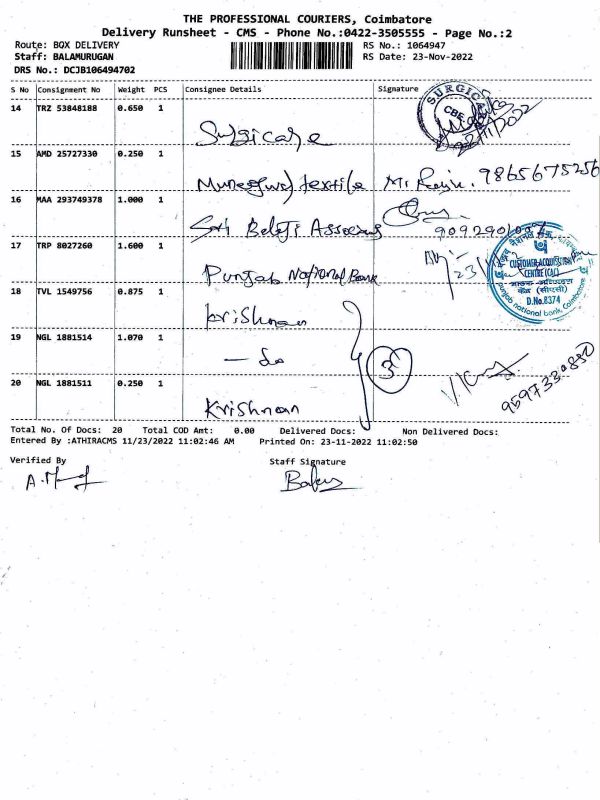 THE PROFESSIONAL COURIERS, Coimbatore
Delivery Runsheet - CMS - Phone No.:0422-3505555 - Page No.:2
Route: BOX DELIVERY RS No.: 1064947
Staff: BALAMURUGAN RS Date: 23-Nov-2022
DRS No.: DCJB106494702
S No Consignment No Weight PCS Consignee Details Signature
14 TRZ 53848188 0.650 1
SURGICA
CBE
Surgicare
15 AMD 25727330 0.250 1
textile Mr 9865675256
16 MAA 293749378 1.000 1
Sri Balaji
17 TRP 8027260 1.600 1
Punjab National Bank
23
CUSTOMER ACQUISITION
CENTRE (CAC)
D.No.8374
punjab national bank, Coimbatore
18 TVL 1549756 0.875 1
Krishnan
19 NGL 1881514 1.070 1
3
20 NGL 1881511 0.250 1
Krishnan
9597330880
Total No. Of Docs: 20 Total COD Amt: 0.00 Delivered Docs: Non Delivered Docs:
Entered By :ATHIRACMS 11/23/2022 11:02:46 AM Printed On: 23-11-2022 11:02:50
Verified By Staff Signature